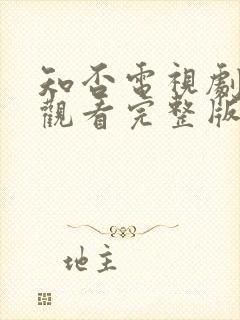 知否電視劇
觀看完整版
地主